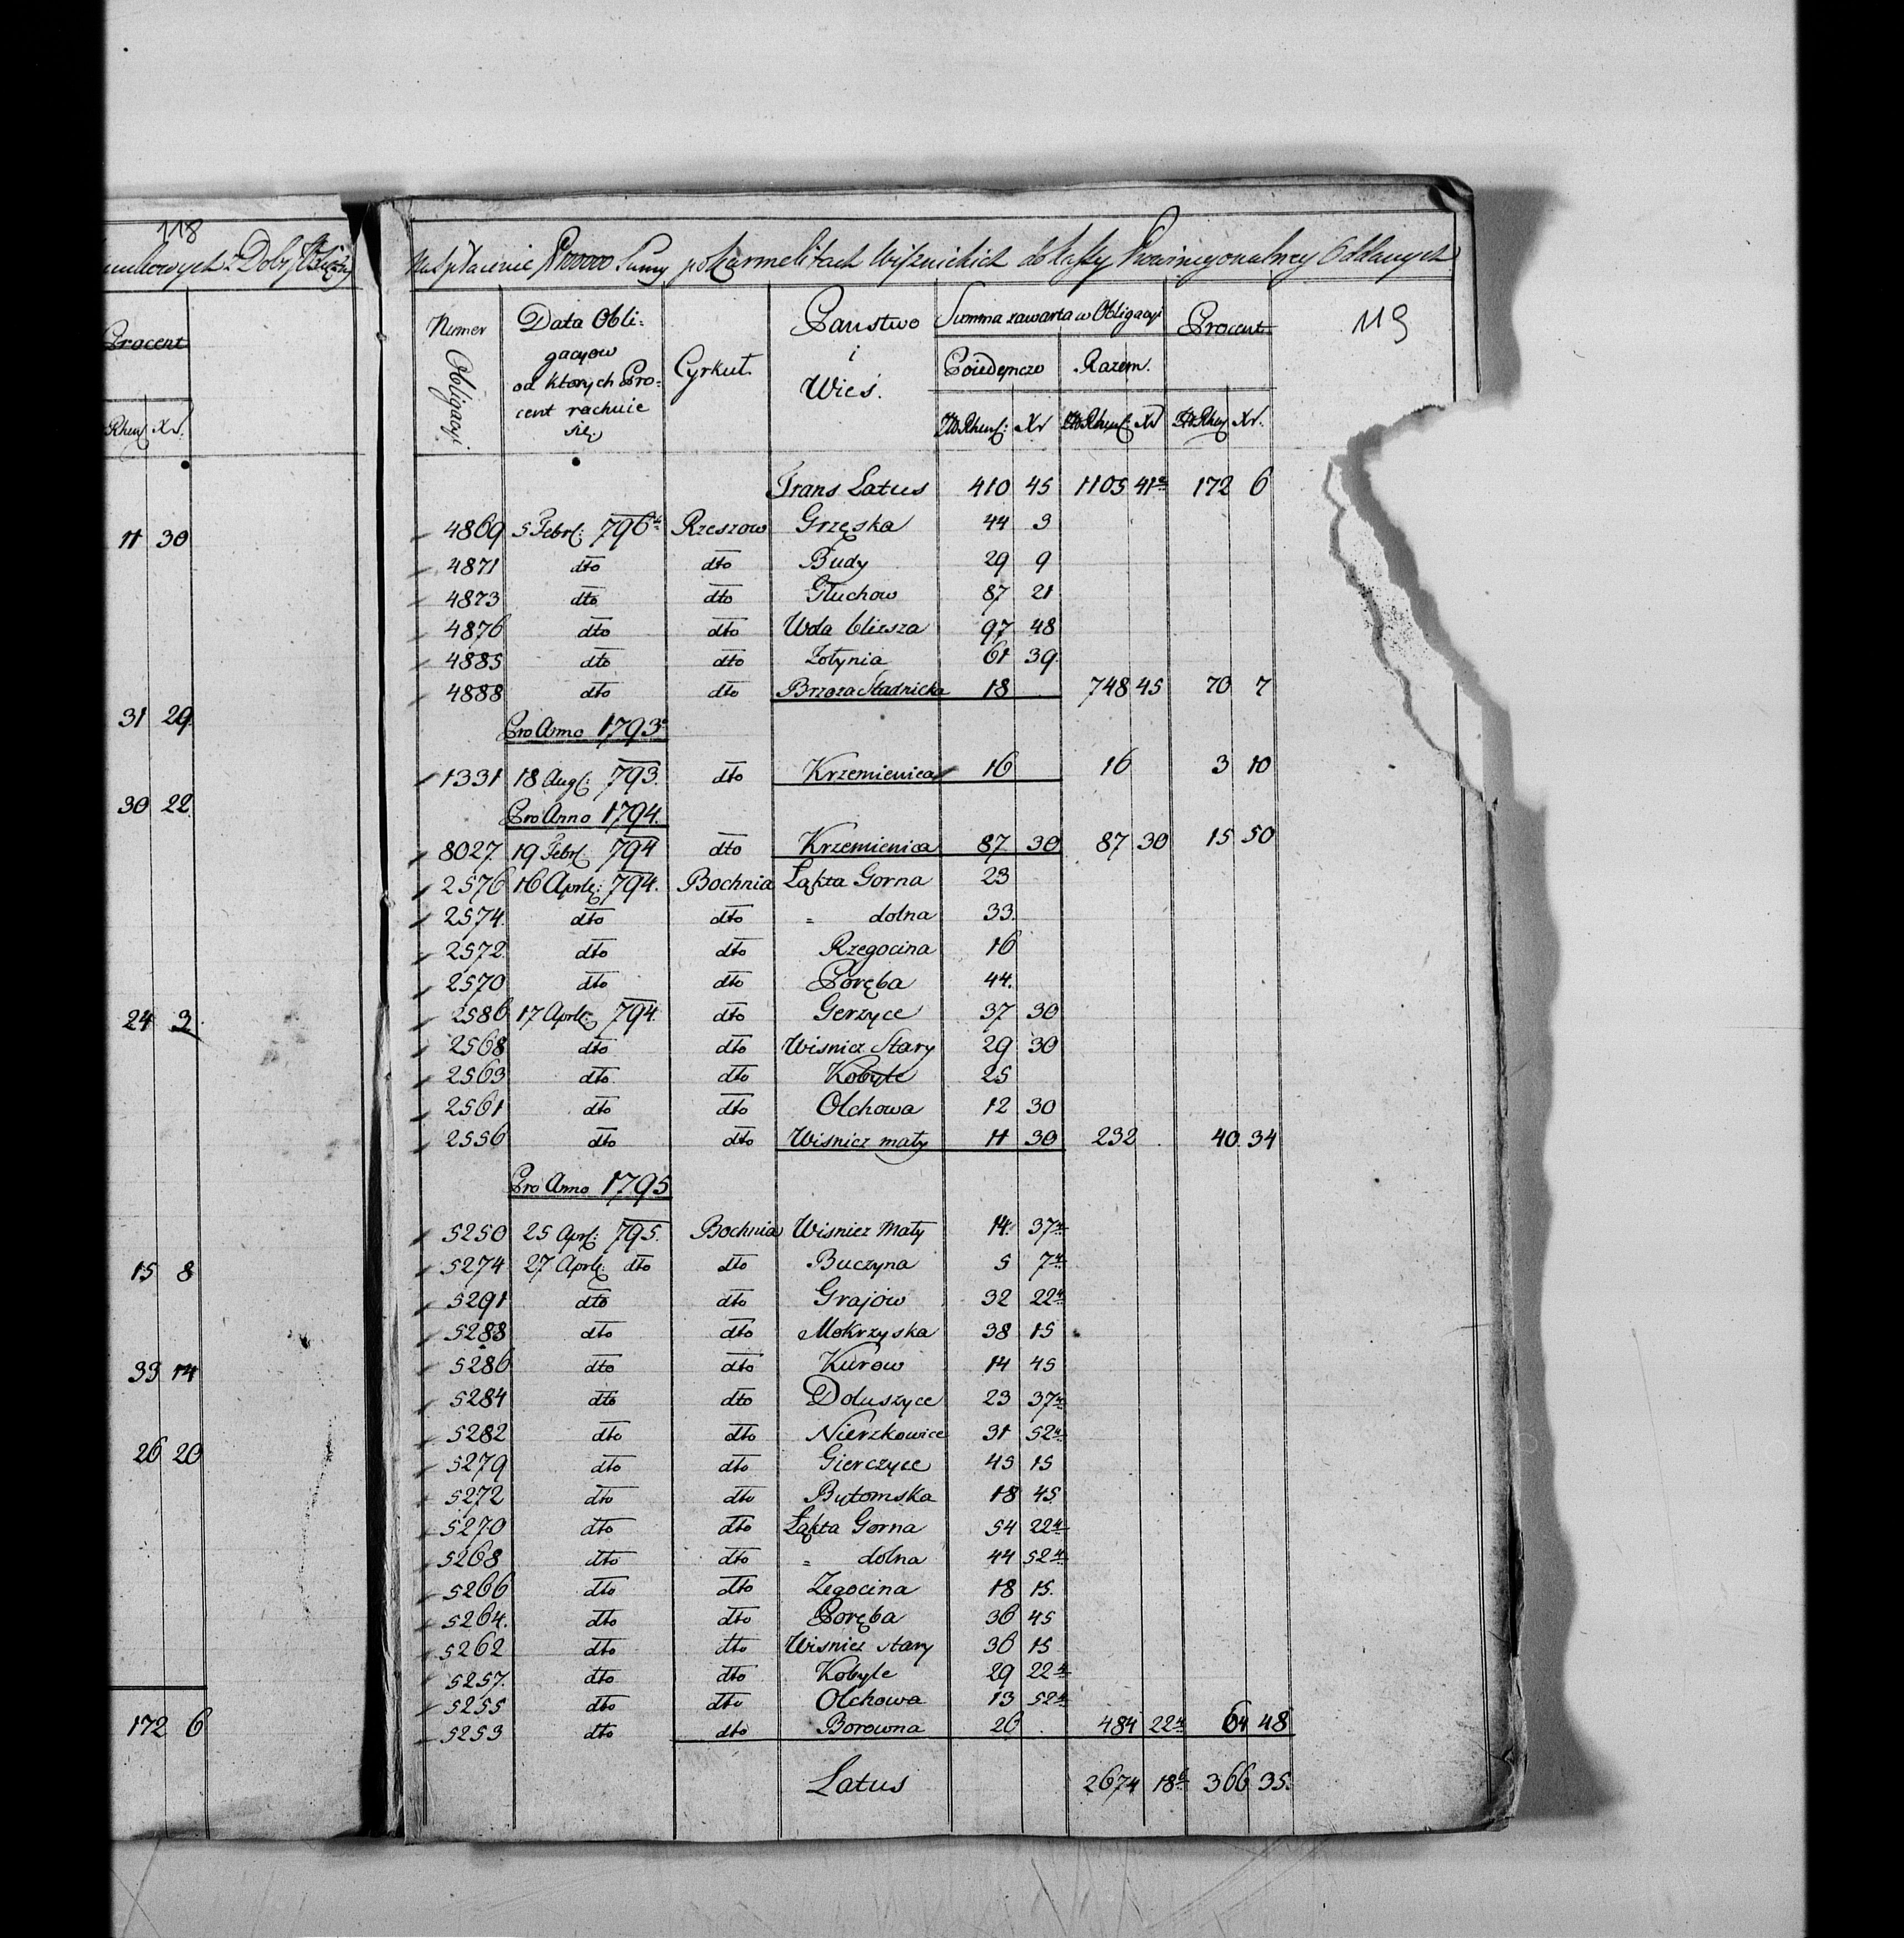 118
Procent
Rhen: Xr.
11 30
31 29.
30 22.
24 3.
15 8
33 14
26 20
172 6
119
Numer Obligacyi
Data Obligacyow od ktorych Procent rachuie się.
Cyrkuł.
Państwo i Wieś.
Summa zawarta w Obligacyi
Procent
Poiedynczo Razem.
ZłRhen: Xr ZłRhen: Xr ZłRhen Xr.
Trans Latus 410 45 1105 41 172 6
4869 5 Febr: 796 Rzeszow Grzęska 44 3
4871 dto dto Budy 29 9
4873 dto dto Głuchow 87 21
4876 dto dto Wola bliższa 97 48
4885 dto dto Zołynia 61 39.
4888 dto dto Brzoza Stadnicka 18 748 45 70 7
Pro Anno 1793
1331 18 Aug: 793. dto Krzemienica 16 16 3 10
Pro Anno 1794.
8027. 19 Febr: 794 dto Krzemienica 87 30 87 30 15 50
2576 16 Apr: 794. Bochnia Łąkta Gorna 23
2574. dto dto = dolna 33.
2572. dto dto Rzegocina 16
2570 dto dto Poręba 44.
2586 17 Apr: 794. dto Gerzyce 37 30
2568 dto dto Wisnicz Stary 29 30
2563 dto dto Kobyle 25
2561 dto dto Olchowa 12 30
2556 dto dto Wisnicz mały 11 30 232 40. 34
Pro Anno 1795
5250 25 Apr: 795. Bochnia Wisnicz Mały 14. 37
5274 27 Apr: dto dto Buczyna 5 7
5291 dto dto Grajów 32 22
5288 dto dto Mokrzyska 38 15
5286 dto dto Kurow 14 45
5284 dto dto Doluszyce 23 37
5282 dto dto Nierzkowice 31 52
5279 dto dto Gierczyce 43 15
5272 dto dto Bytomska 18 45.
5270 dto dto Łąkta Gorna 54 22
5268 dto dto = dolna 44 52
5266 dto dto Zegocina 18 15.
5264. dto dto Poręba 36 45
5262 dto dto Wisnicz stary 36 15
5257. dto dto Kobyle 29 22
5255 dto dto Olchowa 13 52
5253 dto dto Borowna 26 484 22 64 48
Latus 2674 18 366 35.